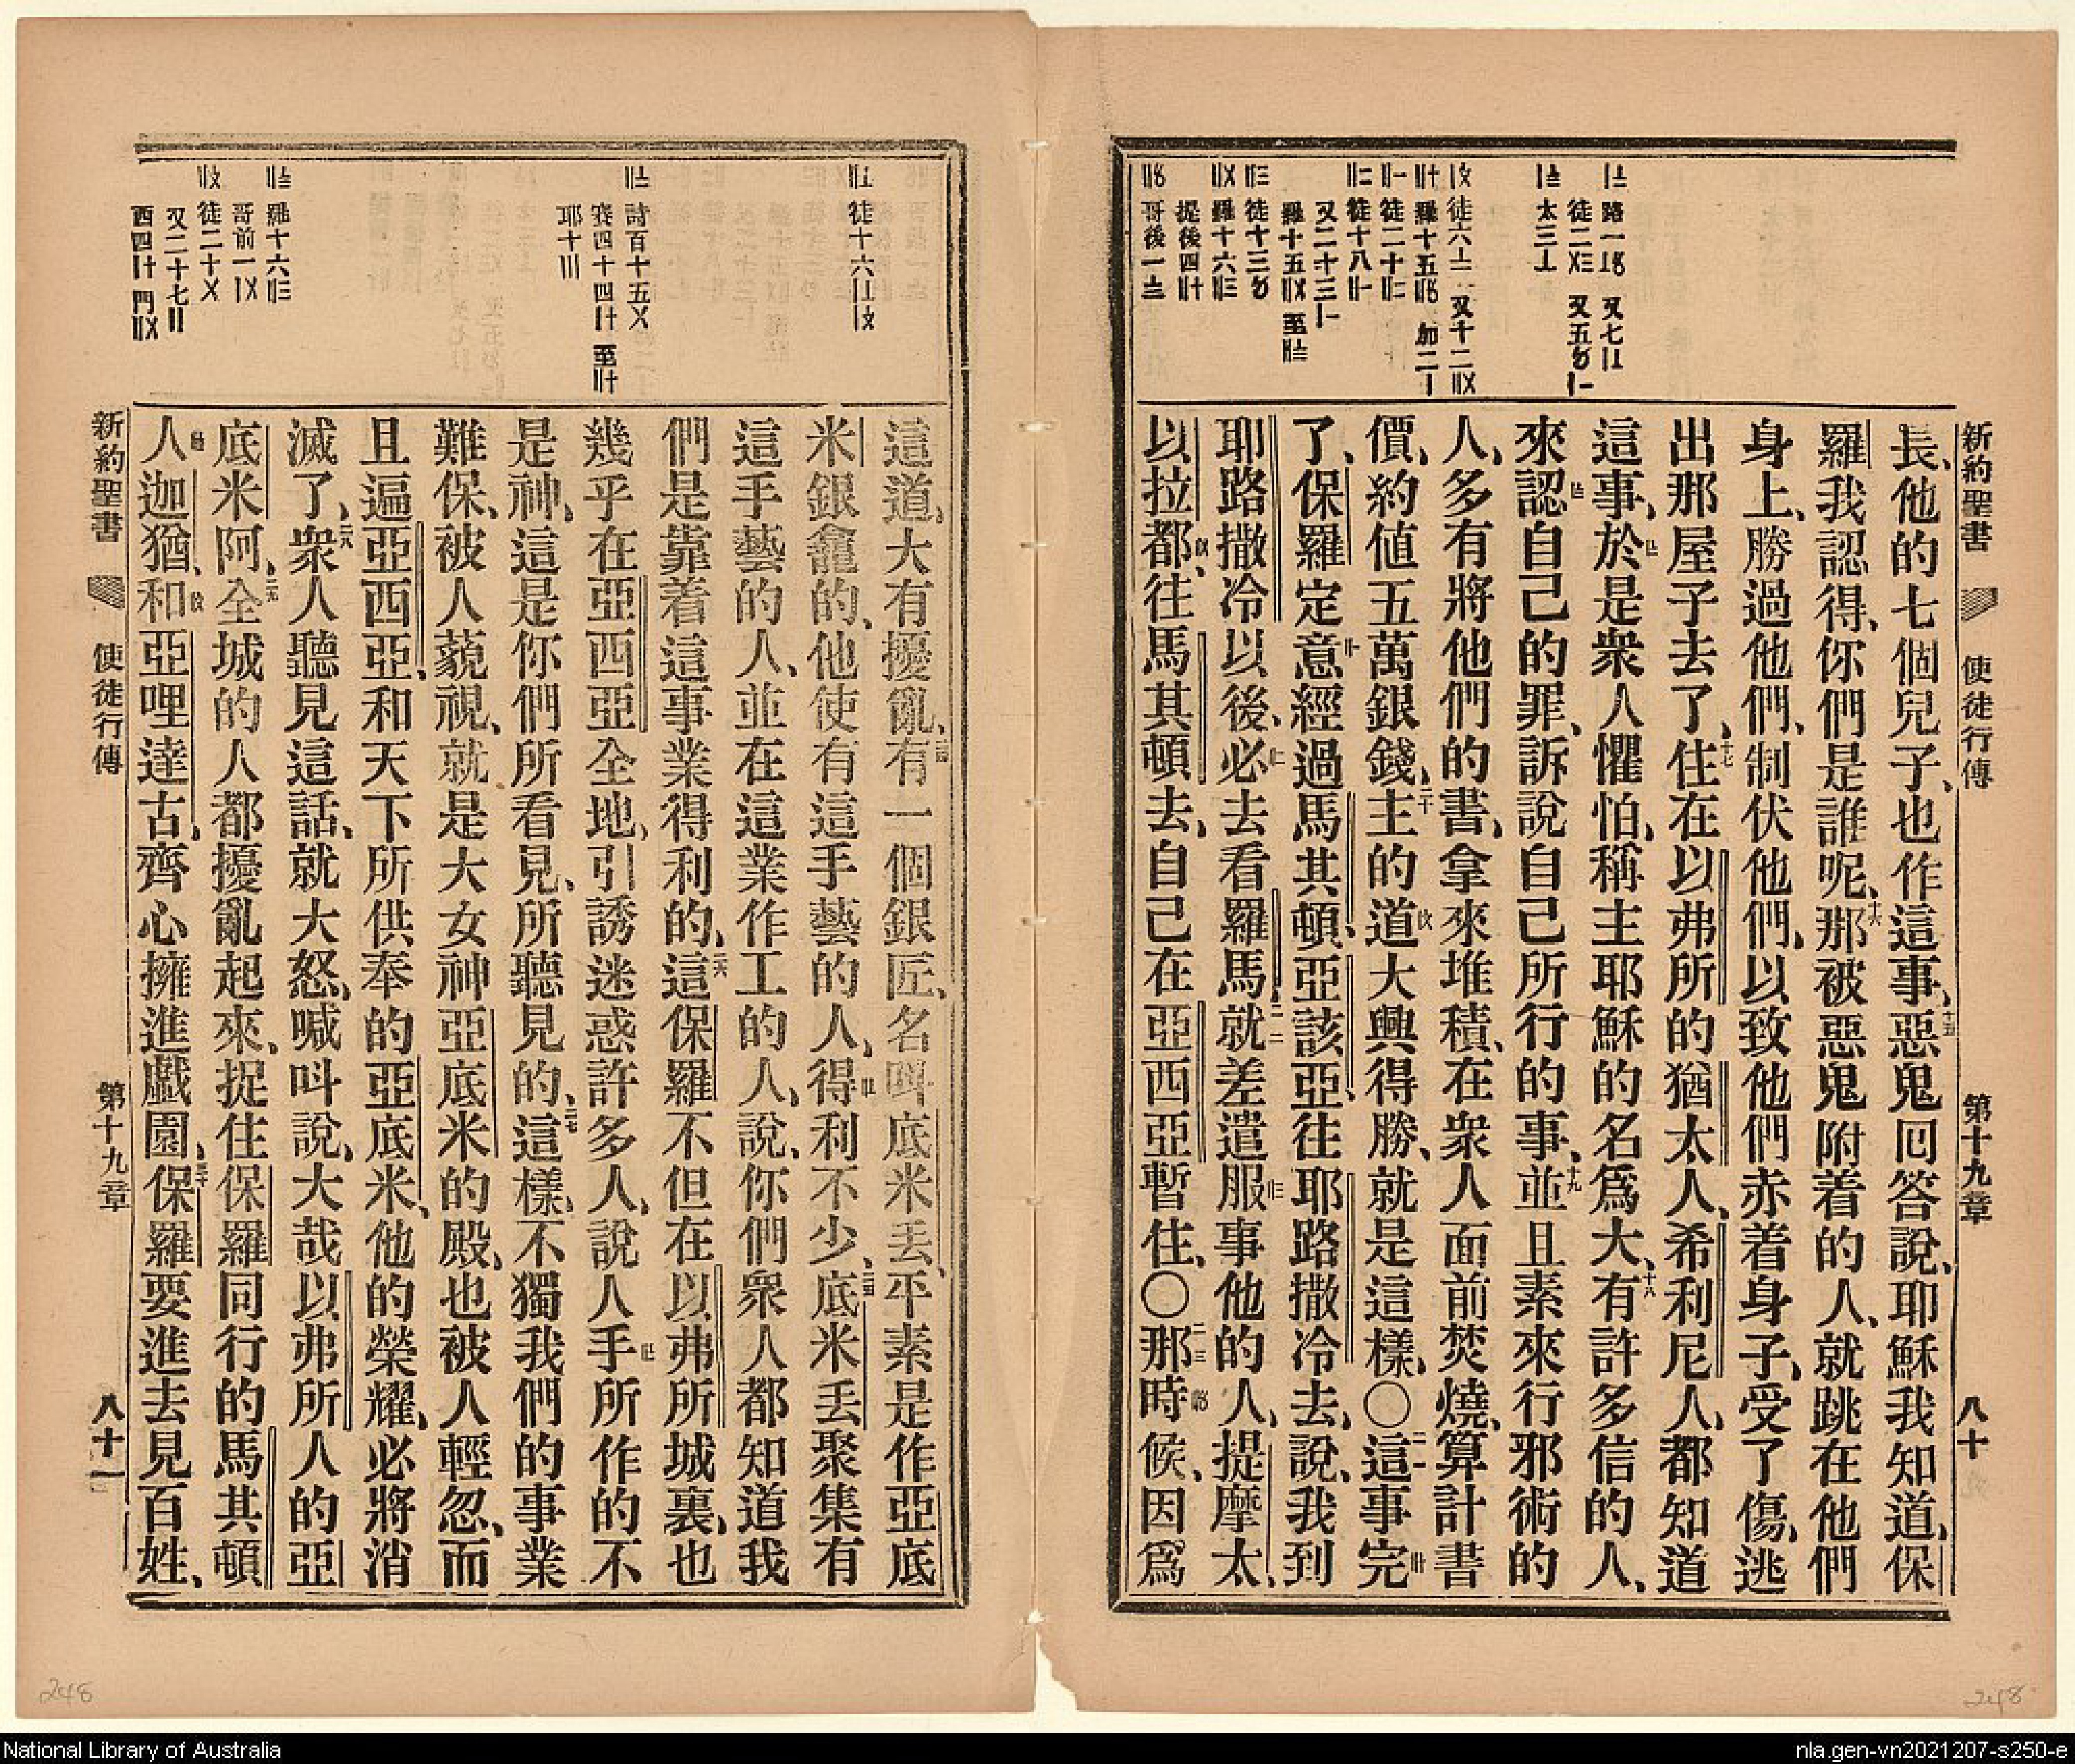 新約聖書 使徒行傳 第十九章 八十
長、他的七個兒子、也作這事、十五惡鬼囘答說、耶穌我知道、保
羅我認得、你們是誰呢、十六那被惡鬼附着的人、就跳在他們
身上、勝過他們、制伏他們、以致他們赤着身子、受了傷、逃
出那屋子去了、十七住在以弗所的猶太人、希利尼人、都知道
這事、於是衆人懼怕、稱主耶穌的名爲大、十八有許多信的人、
來認自己的罪、訴說自己所行的事、十九並且素來行邪術的
人、多有將他們的書、拿來堆積、在衆人面前焚燒、算計書
價、約値五萬銀錢、二十主的道大興得勝、就是這樣、〇二一這事完
了、保羅定意經過馬其頓、亞該亞、往耶路撒冷去、說、我到
耶路撒冷以後、必去看羅馬、二二就差遣服事他的人、提摩太、
以拉都、往馬其頓去、自己在亞西亞暫住、〇二三那時候、因爲
這道、大有擾亂、二四有一個銀匠、名呌底米丢、平素是作亞底
米銀龕的、他使有這手藝的人、得利不少、二五底米丢聚集有
這手藝的人、並在這業作工的人、說、你們衆人都知道我
們是靠着這事業得利的、二六這保羅不但在以弗所城裏、也
幾乎在亞西亞全地、引誘迷惑許多人、說人手所作的不
是神、這是你們所看見、所聽見的、二七這樣、不獨我們的事業
難保、被人藐視、就是大女神亞底米的殿、也被人輕忽、而
且遍亞西亞、和天下所供奉的亞底米、他的榮耀、必將消
滅了、二八衆人聽見這話、就大怒、喊呌說、大哉以弗所人的亞
底米阿、二九全城的人都擾亂起來、捉住保羅同行的馬其頓
人迦猶、和亞哩達古、齊心擁進戲園、三十保羅要進去見百姓、
新約聖書 使徒行傳 第十九章 八十一
248
248
National Library of Australia
nla.gen-vn2021207-s250-e